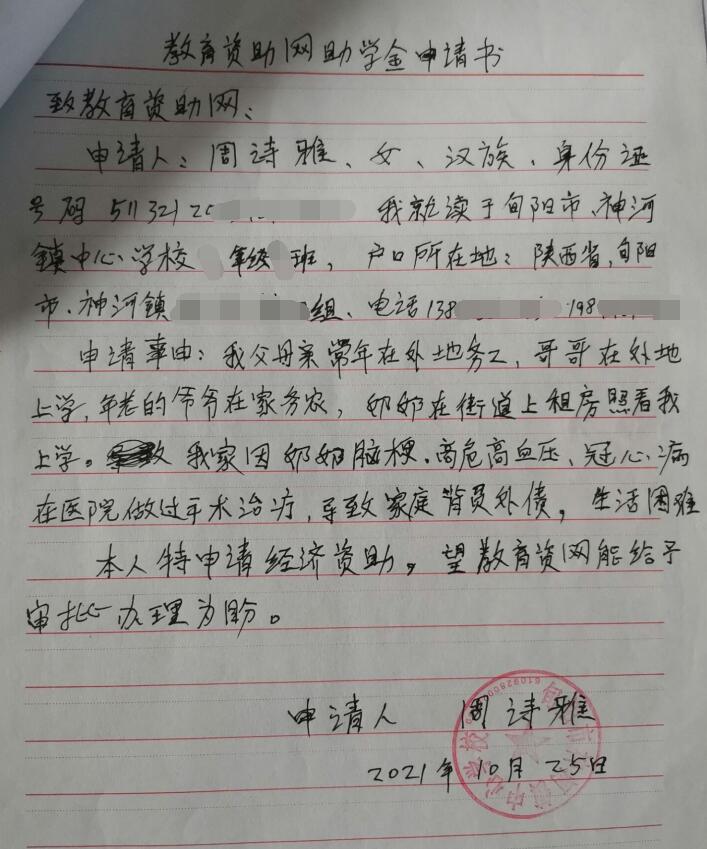 教育资助网助学金申请书
致教育资助网：
申请人：周诗雅、女、汉族、身份证
号码 511321 20 我就读于旬阳市、神河
镇中心学校 年级 班，户口所在地：陕西省，旬阳
市、神河镇 组、电话138 198
申请事由：我父母亲常年在外地务工，哥哥在外地
上学，年老的爷爷在家务农，奶奶在街道上租房照看我
上学。我家因奶奶脑梗、高危高血压、冠心病
在医院做过手术治疗，导致家庭背负外债，生活困难
本人特申请经济资助，望教育资网能给予
审批办理为盼。
申请人 周诗雅
2021年10月25日